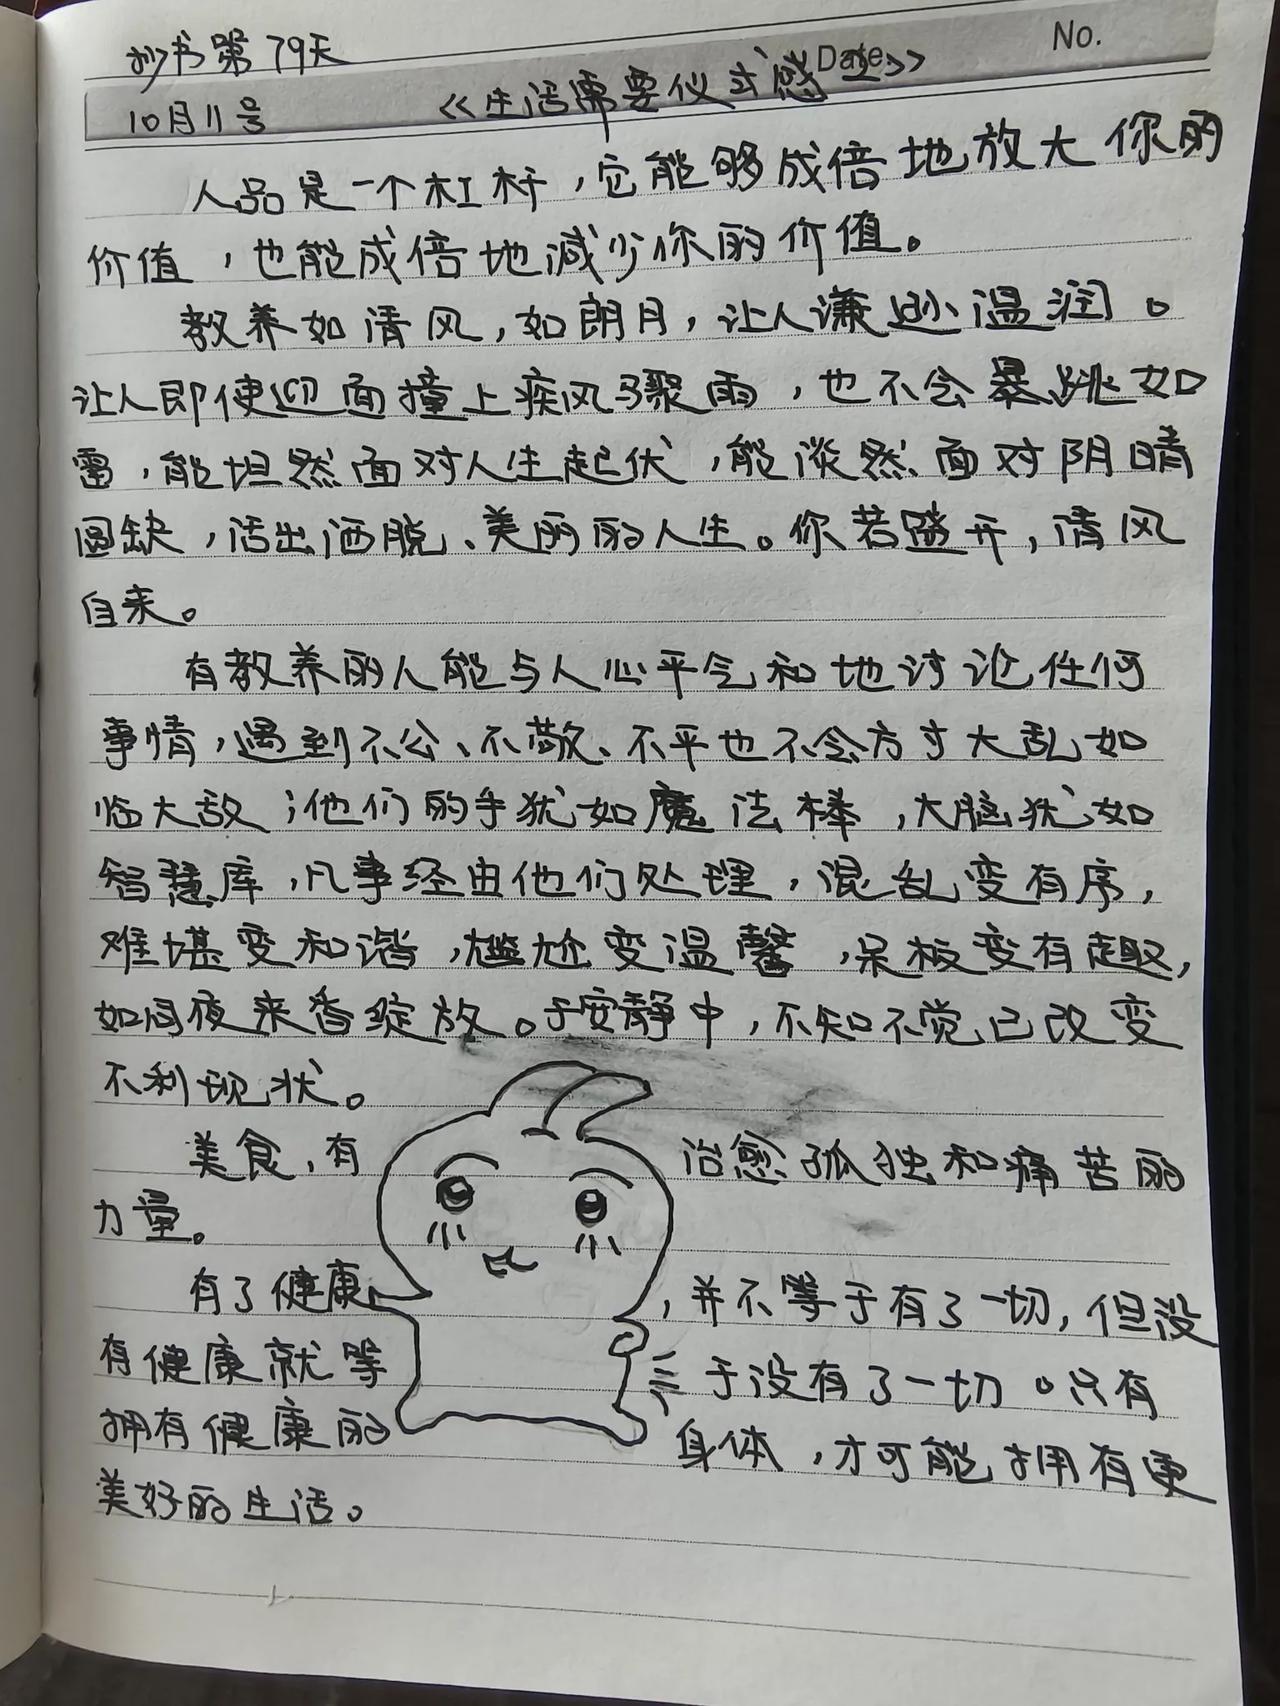 抄书第79天
No.
Date
10月11号 《生活需要仪式感》
人品是一个杠杆，它能够成倍地放大你的
价值，也能成倍地减少你的价值。
教养如清风，如朗月，让人谦逊温润。
让人即使迎面撞上疾风骤雨，也不会暴跳如
雷，能坦然面对人生起伏，能淡然面对阴晴
圆缺，活出洒脱、美丽的人生。你若盛开，清风
自来。
有教养的人能与人心平气和地讨论任何
事情，遇到不公、不敬、不平也不会方寸大乱如
临大敌；他们的手犹如魔法棒，大脑犹如
智慧库，凡事经由他们处理，混乱变有序，
难堪变和谐，尴尬变温馨，呆板变有趣，
如同夜来香绽放。于安静中，不知不觉已改变
不利现状。
美食，有治愈孤独和痛苦的
力量。
有了健康，并不等于有了一切，但没
有健康就等于没有了一切。只有
拥有健康的身体，才可能拥有更
美好的生活。